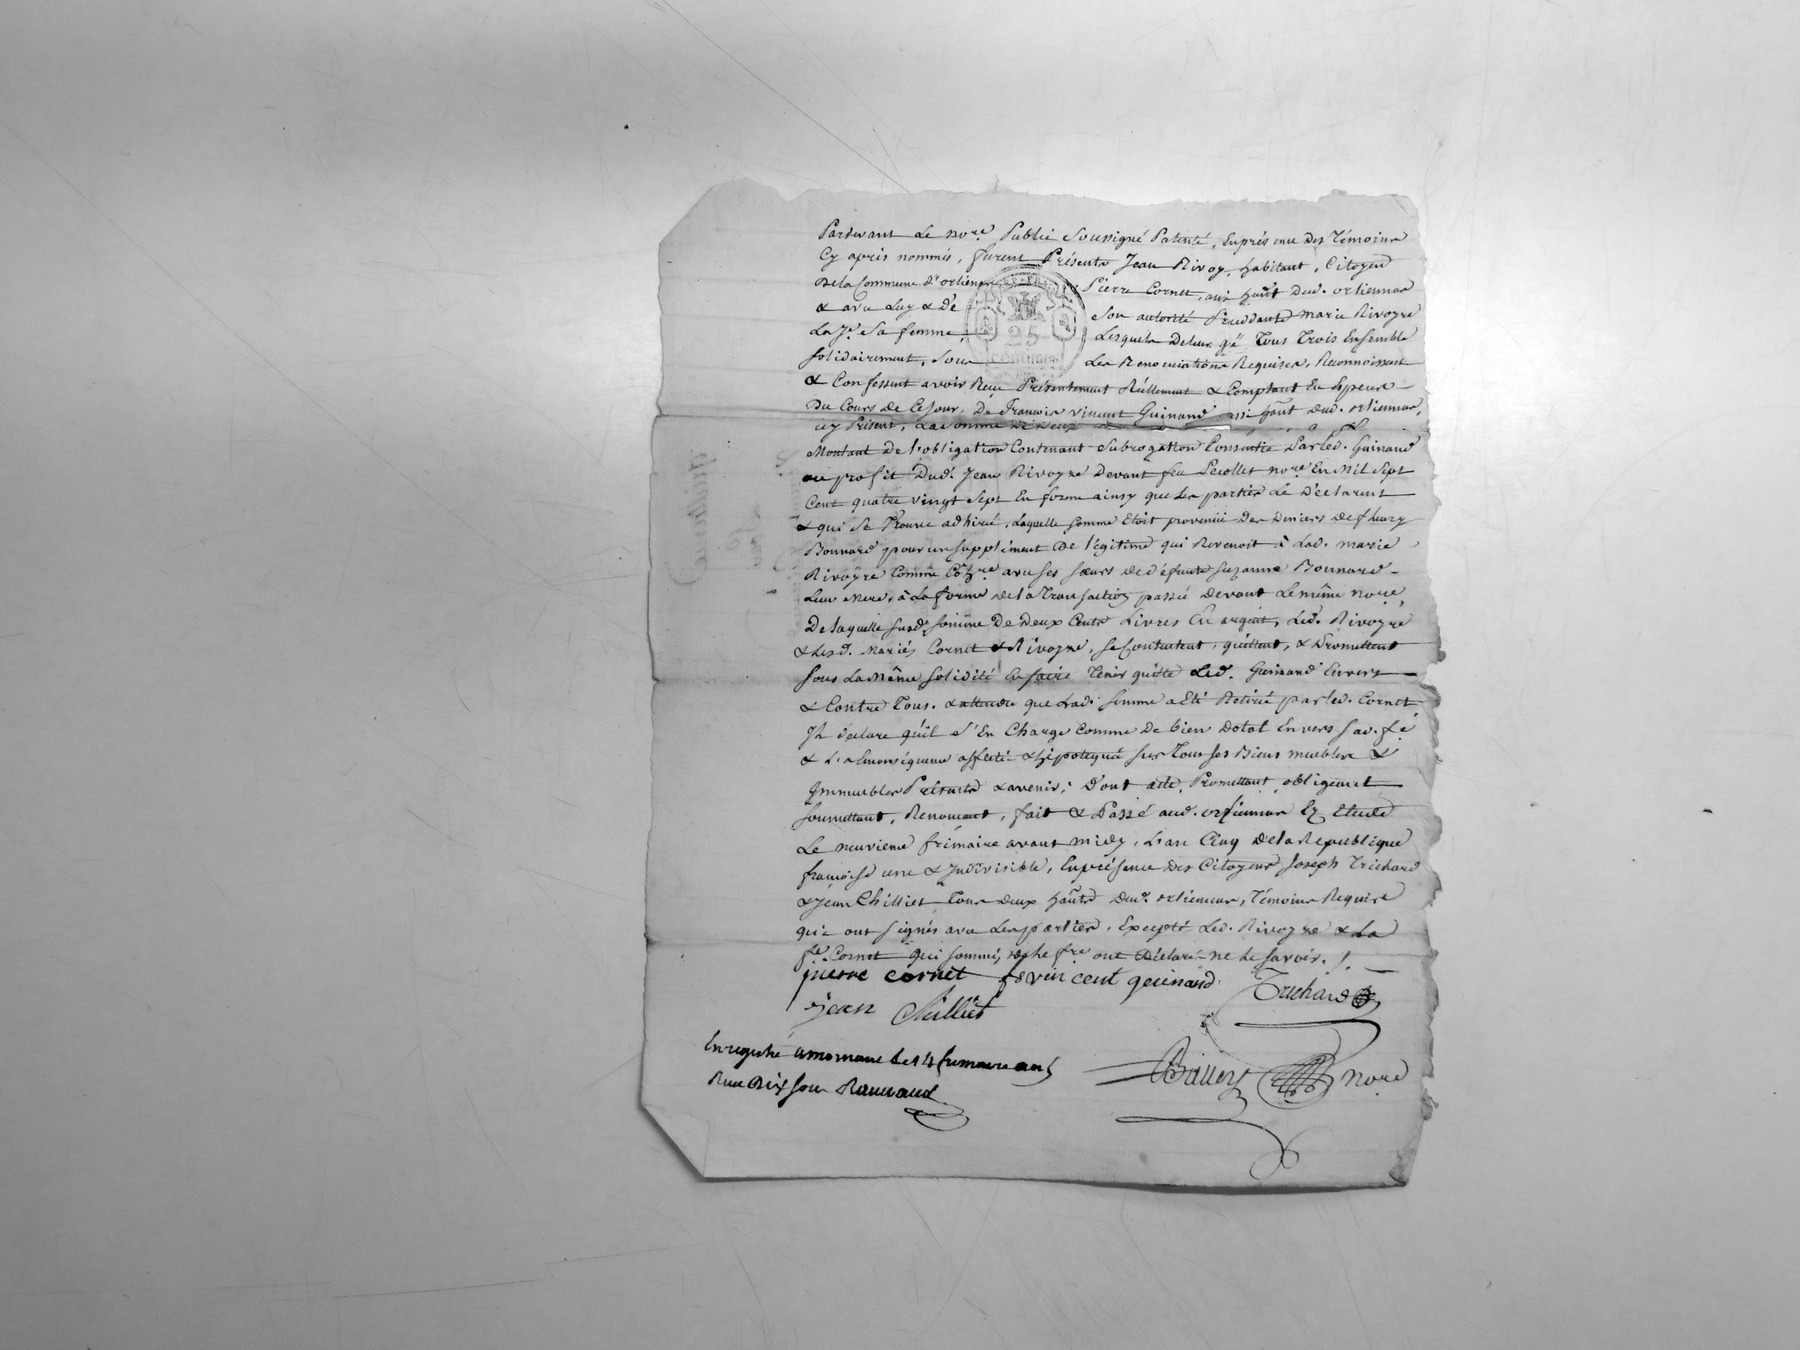 Pardevant Le nore. Public Soussigné Patenté, Enprésence Des Témoins
Cy après nommés, furent Présents Jean Rivoy, habitant, Citoyen
De la Commune d'orlienas Pierre Cornet, aussi hant dud. orlienas
& avec Luy & De Son autorité Procédante marie Rivoyre
La Je. Sa femme, Lesquels Deleur gré Tous Trois Ensemble
Solidairement, Sous Les Renonciations Requises, Reconnoissent
& Confessent avoir Reçu Présentement Réellement & Comptant En Especes
Du Cours de Cejour, De François vincent Guinand hant dud. orlienas,
icy Présent, La somme De Deux
Montant De l'obligation Contenant Subrogation Consentie Par Led. Guinand
au profit Dud. Jean Rivoyre Devant feu Lecollet nore. En Mil Sept
Cent quatre vingt Sept En forme ainsy que Les parties Le Déclarent
& qui Se Trouve adhiré, Laquelle Somme Etoit provenüe Des Deniers De fleury
Bonnard pour un Supplément De légitime qui Revenoit à Lad. marie
Rivoyre Comme avec Ses Sœurs de défunte Suzanne Bonnard
Leur Mere, à La forme de la Transaction passée devant Le même nore,
De laquelle Susde. Somme De Deux Cents Livres En argent, Led. Rivoyre
& Lesd. Mariés Cornet & Rivoyre, Se Contentent, quittent, & Promettent
Sous La Même Solidité faire Tenir quitte Led. Guinand Envers
& Contre Tous. & attendu que Lad. Somme a Eté Retirée par Led. Cornet
Il déclare qu'il S'En Charge Comme De bien Dotal Envers Sad. fe.
& L'a Enconséquence affecté & hipotequé Sur Tous Ses Biens meubles &
Immeubles Présents & avenir; D'ont acte, Promettant, obligeant
Soumettant, Renonçant, fait & Passé aud. orlienas Ez Etude
Le neuvieme frimaire avant midy, L'an Cinq De la Republique
françoise une & Indivisible, Enprésence Des Citoyens Joseph Trichard
& Jean Chilliet Tous deux hants Dud. orlienas, Témoins Requis
qui ont Signés avec Les parties, Excepté Led. Rivoyre & La
fe. Cornet qui Sommés, ont Déclaré ne Le Savoir. /.
pierre cornet fs vincent guinand Trichard
jean Chilliet
Enregistré amornant le 14 frimaire an 5
Reçu Dix Sous Ramaud
nore